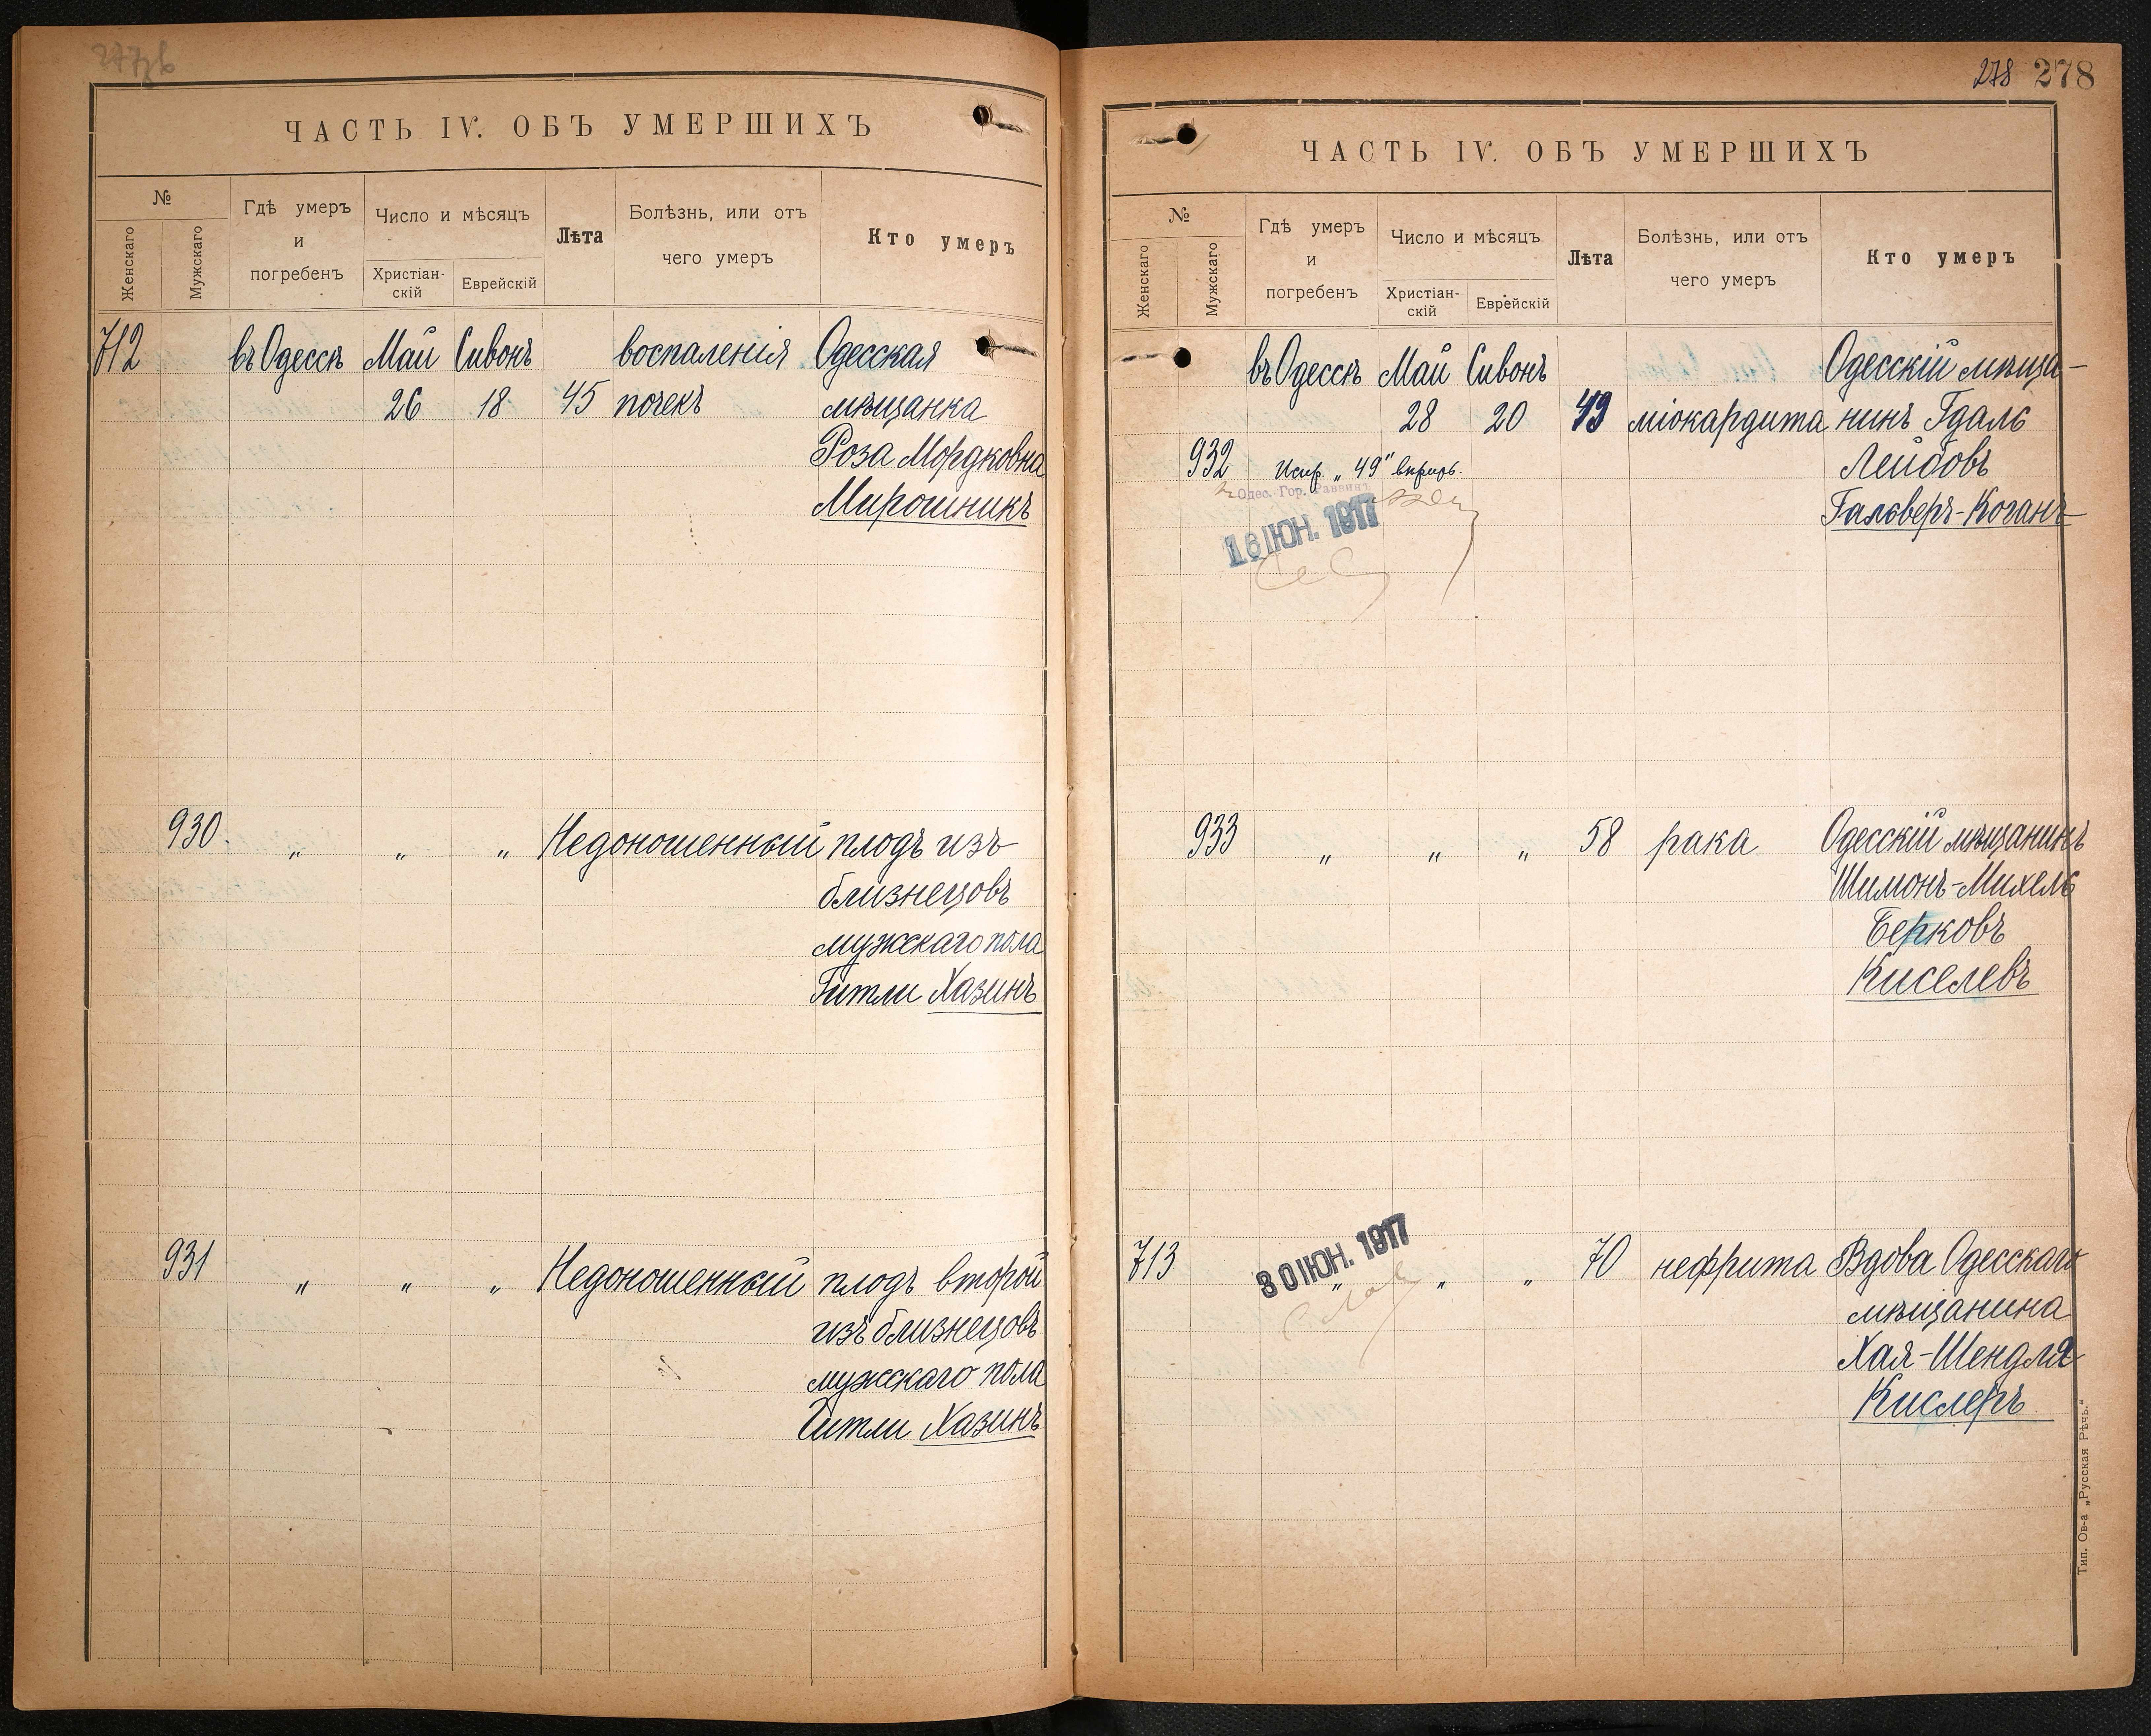 ЧАСТЬ IV. ОБЪ УМЕРШИХЪ
№
Женскаго
Мужскаго
Гдѣ умеръ
и
погребенъ
Число и мѣсяцъ
Христіан-
скій
Еврейскій
Лѣта
Болѣзнь, или отъ
чего умеръ
Кто умеръ
712 въ Одессѣ Май Сивонъ воспаленія Одесская
26 18 45 почекъ мѣщанка
Роза Мордковна
Мирошникъ
930. „ „ „ Недоношенный плодъ изъ
близнецовъ
мужскаго пола
Гитли Хазинъ
931 „ „ „ Недоношенный плодъ второй
изъ близнецовъ
мужскаго пола
Гитли Хазинъ
278 278
ЧАСТЬ IV. ОБЪ УМЕРШИХЪ
№
Женскаго
Мужскаго
Гдѣ умеръ
и
погребенъ
Число и мѣсяцъ
Христіан-
скій
Еврейскій
Лѣта
Болѣзнь, или отъ
чего умеръ
Кто умеръ
въ Одессѣ Май Сивонъ Одесскій мѣща-
28 20 49 міокардита нинъ Гдаль
932 Испр. „49" вѣрно. Лейбовъ
Одес. Гор. Раввинъ
Гальверъ-Коганъ
16 ІЮН. 1917
933 „ „ „ 58 рака Одесскій мѣщанинъ
Шимонъ-Михель
Берковъ
Киселевъ
30 ІЮН. 1917
713 „ „ „ 70 нефрита Вдова Одесскаго
мѣщанина
Хая-Шендля
Кислеръ
Тип. Ов-а „Русская Рѣчь."